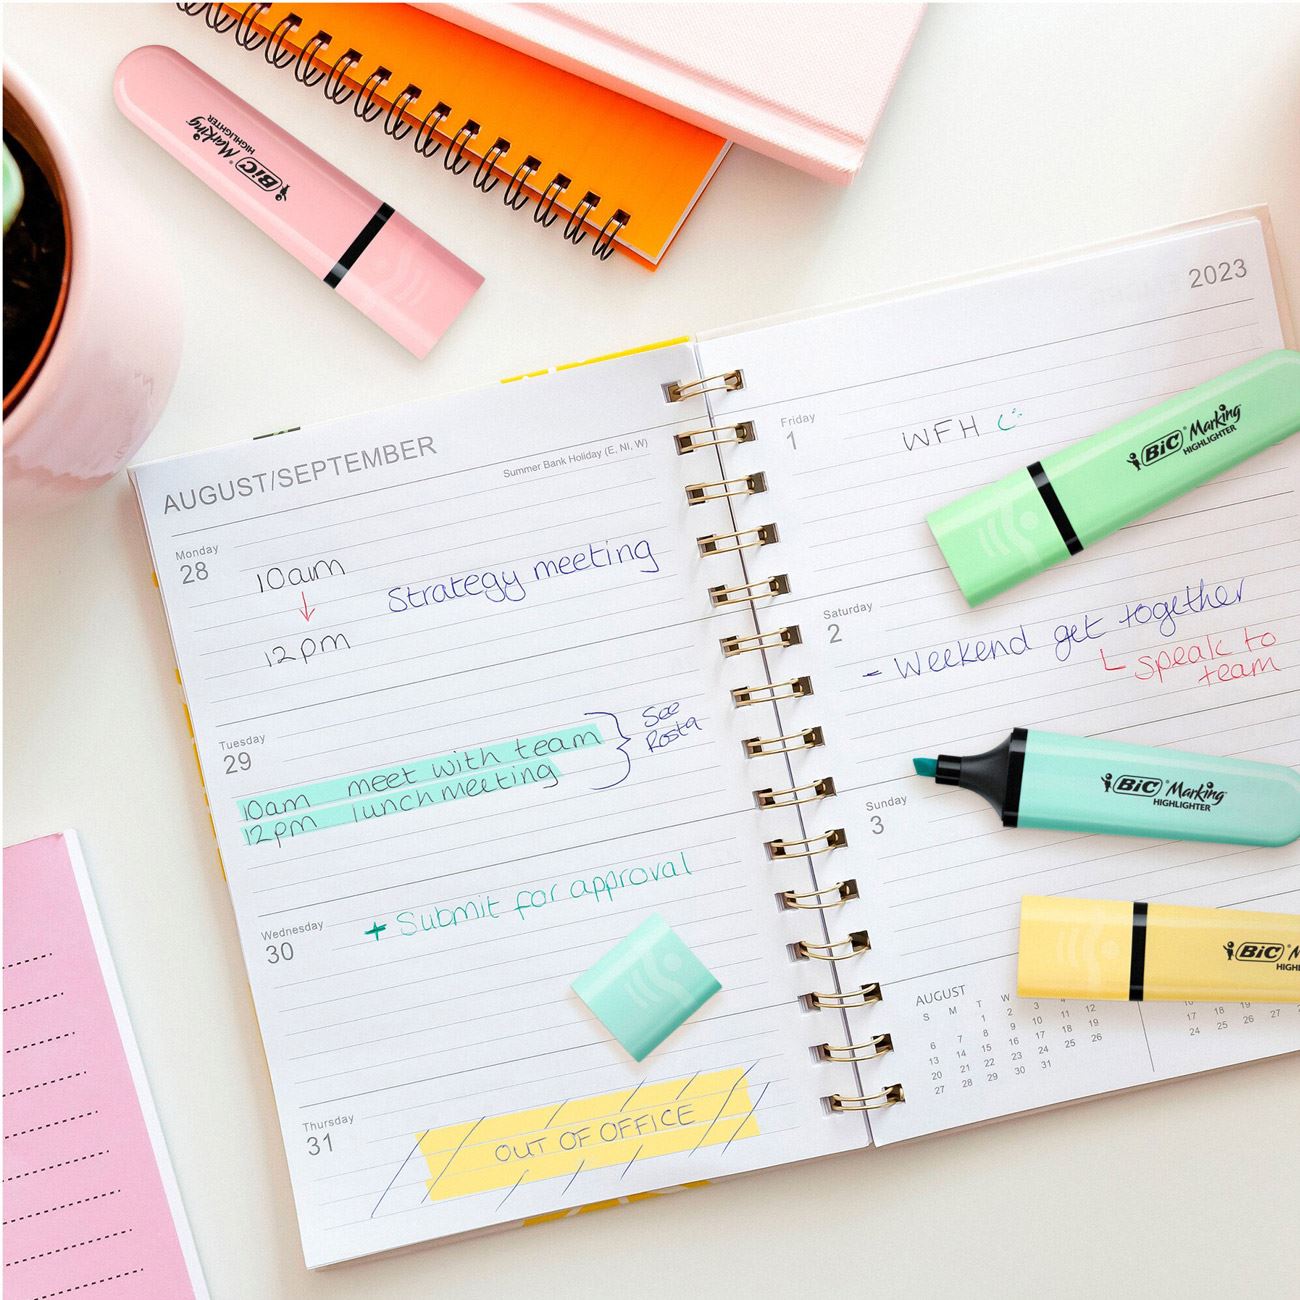 BIC® Marking
HIGHLIGHTER
2023
AUGUST/SEPTEMBER
Summer Bank Holiday (E, NI, W)
Monday
28
10am
12pm
Strategy meeting
Tuesday
29
10am meet with team
12pm lunch meeting
See
Rosta
Wednesday
30
+ Submit for approval
Thursday
31
OUT OF OFFICE
Friday
1
WFH
BIC® Marking
HIGHLIGHTER
Saturday
2
- Weekend get together
speak to
team
Sunday
3
BIC® Marking
HIGHLIGHTER
BIC® M
HIGHL
AUGUST
S M T W
1 2 3 4 5
6 7 8 9 10 11 12
13 14 15 16 17 18 19
20 21 22 23 24 25 26
27 28 29 30 31
24 25 26 27